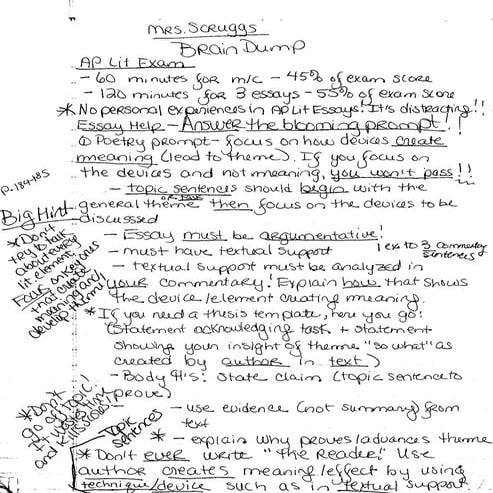 Mrs. Scruggs
Brain Dump
AP Lit Exam
- 60 minutes for m/c - 45% of exam score
- 120 minutes for 3 essays - 55% of exam score
* No personal experiences in AP Lit Essays! It's distracting!!
Essay Help - Answer the blooming prompt!!
① Poetry prompt - focus on how devices create
meaning (lead to theme). If you focus on
the devices and not meaning, you won't pass!!
p. 184-185
- topic sentences should begin with the
general theme then focus on the devices to be
discussed
Big Hint
* Don't
try to talk
about every
lit element.
Focus on
that create
meaning and
develop theme
- Essay must be argumentative!
- must have textual support
1 ex to 3 commentary
sentences
- textual support must be analyzed in
your commentary! Explain how that shows
the device/element creating meaning.
* If you need a thesis template, here you go:
(Statement acknowledging task + statement
showing your insight of theme "so what" as
created by author in text)
- Body ¶'s: State claim (topic sentence to
prove)
* Don't
go off topic!
It wastes time
and kills
Topic
sentences
- use evidence (not summary) from
text
* - explain why proves/advances theme
* Don't ever write "The Reader." Use
author creates meaning/effect by using
technique/device such as in textual support.